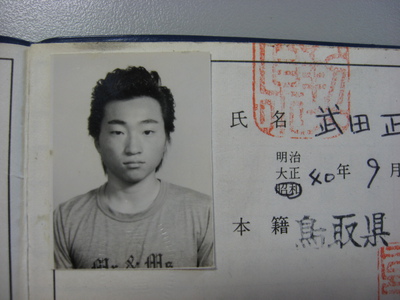 氏名 武田正
明治
大正 40年9月
昭和
本籍 鳥取県